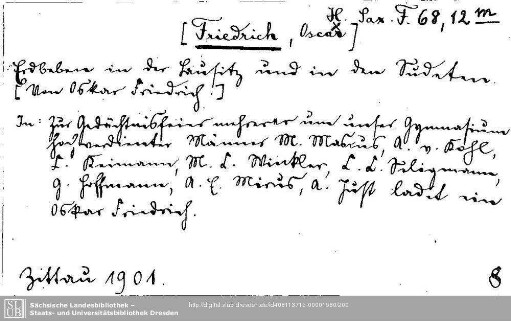 H. Sax. F. 68, 12 m
[Friedrich, Oscar]
Erdbeben in der Lausitz und in den Sudeten.
[Von Oskar Friedrich.]
In: Zur Gedächtnisfeier mehrerer um unser Gymnasium
hochverdienter Männer M. Mascus, A. v. Kohl,
C. Keimann, M. C. Winkler, C. C. Seligmann,
G. Hoffmann, A. E. Mirus, A. Just ladet ein
Oskar Friedrich.
Zittau 1901.
8
SLUB
Sächsische Landesbibliothek –
Staats- und Universitätsbibliothek Dresden